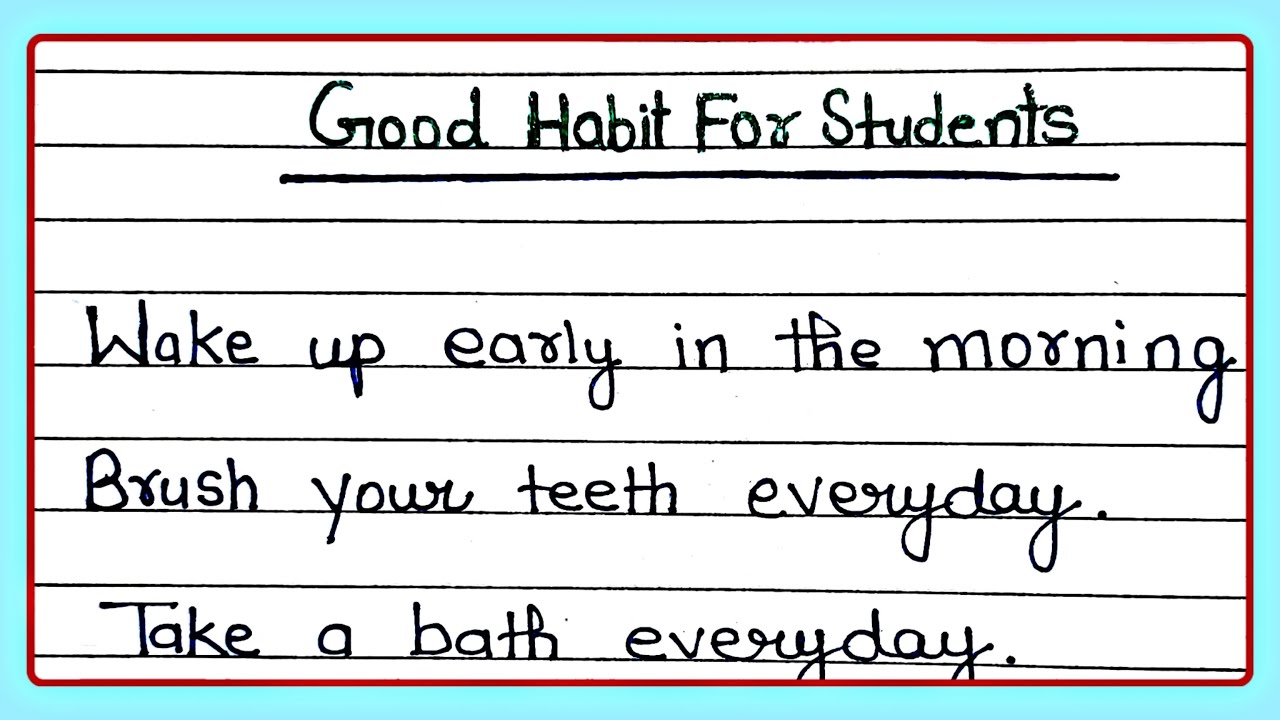 Good Habit For Students
Wake up early in the morning
Brush your teeth everyday.
Take a bath everyday.